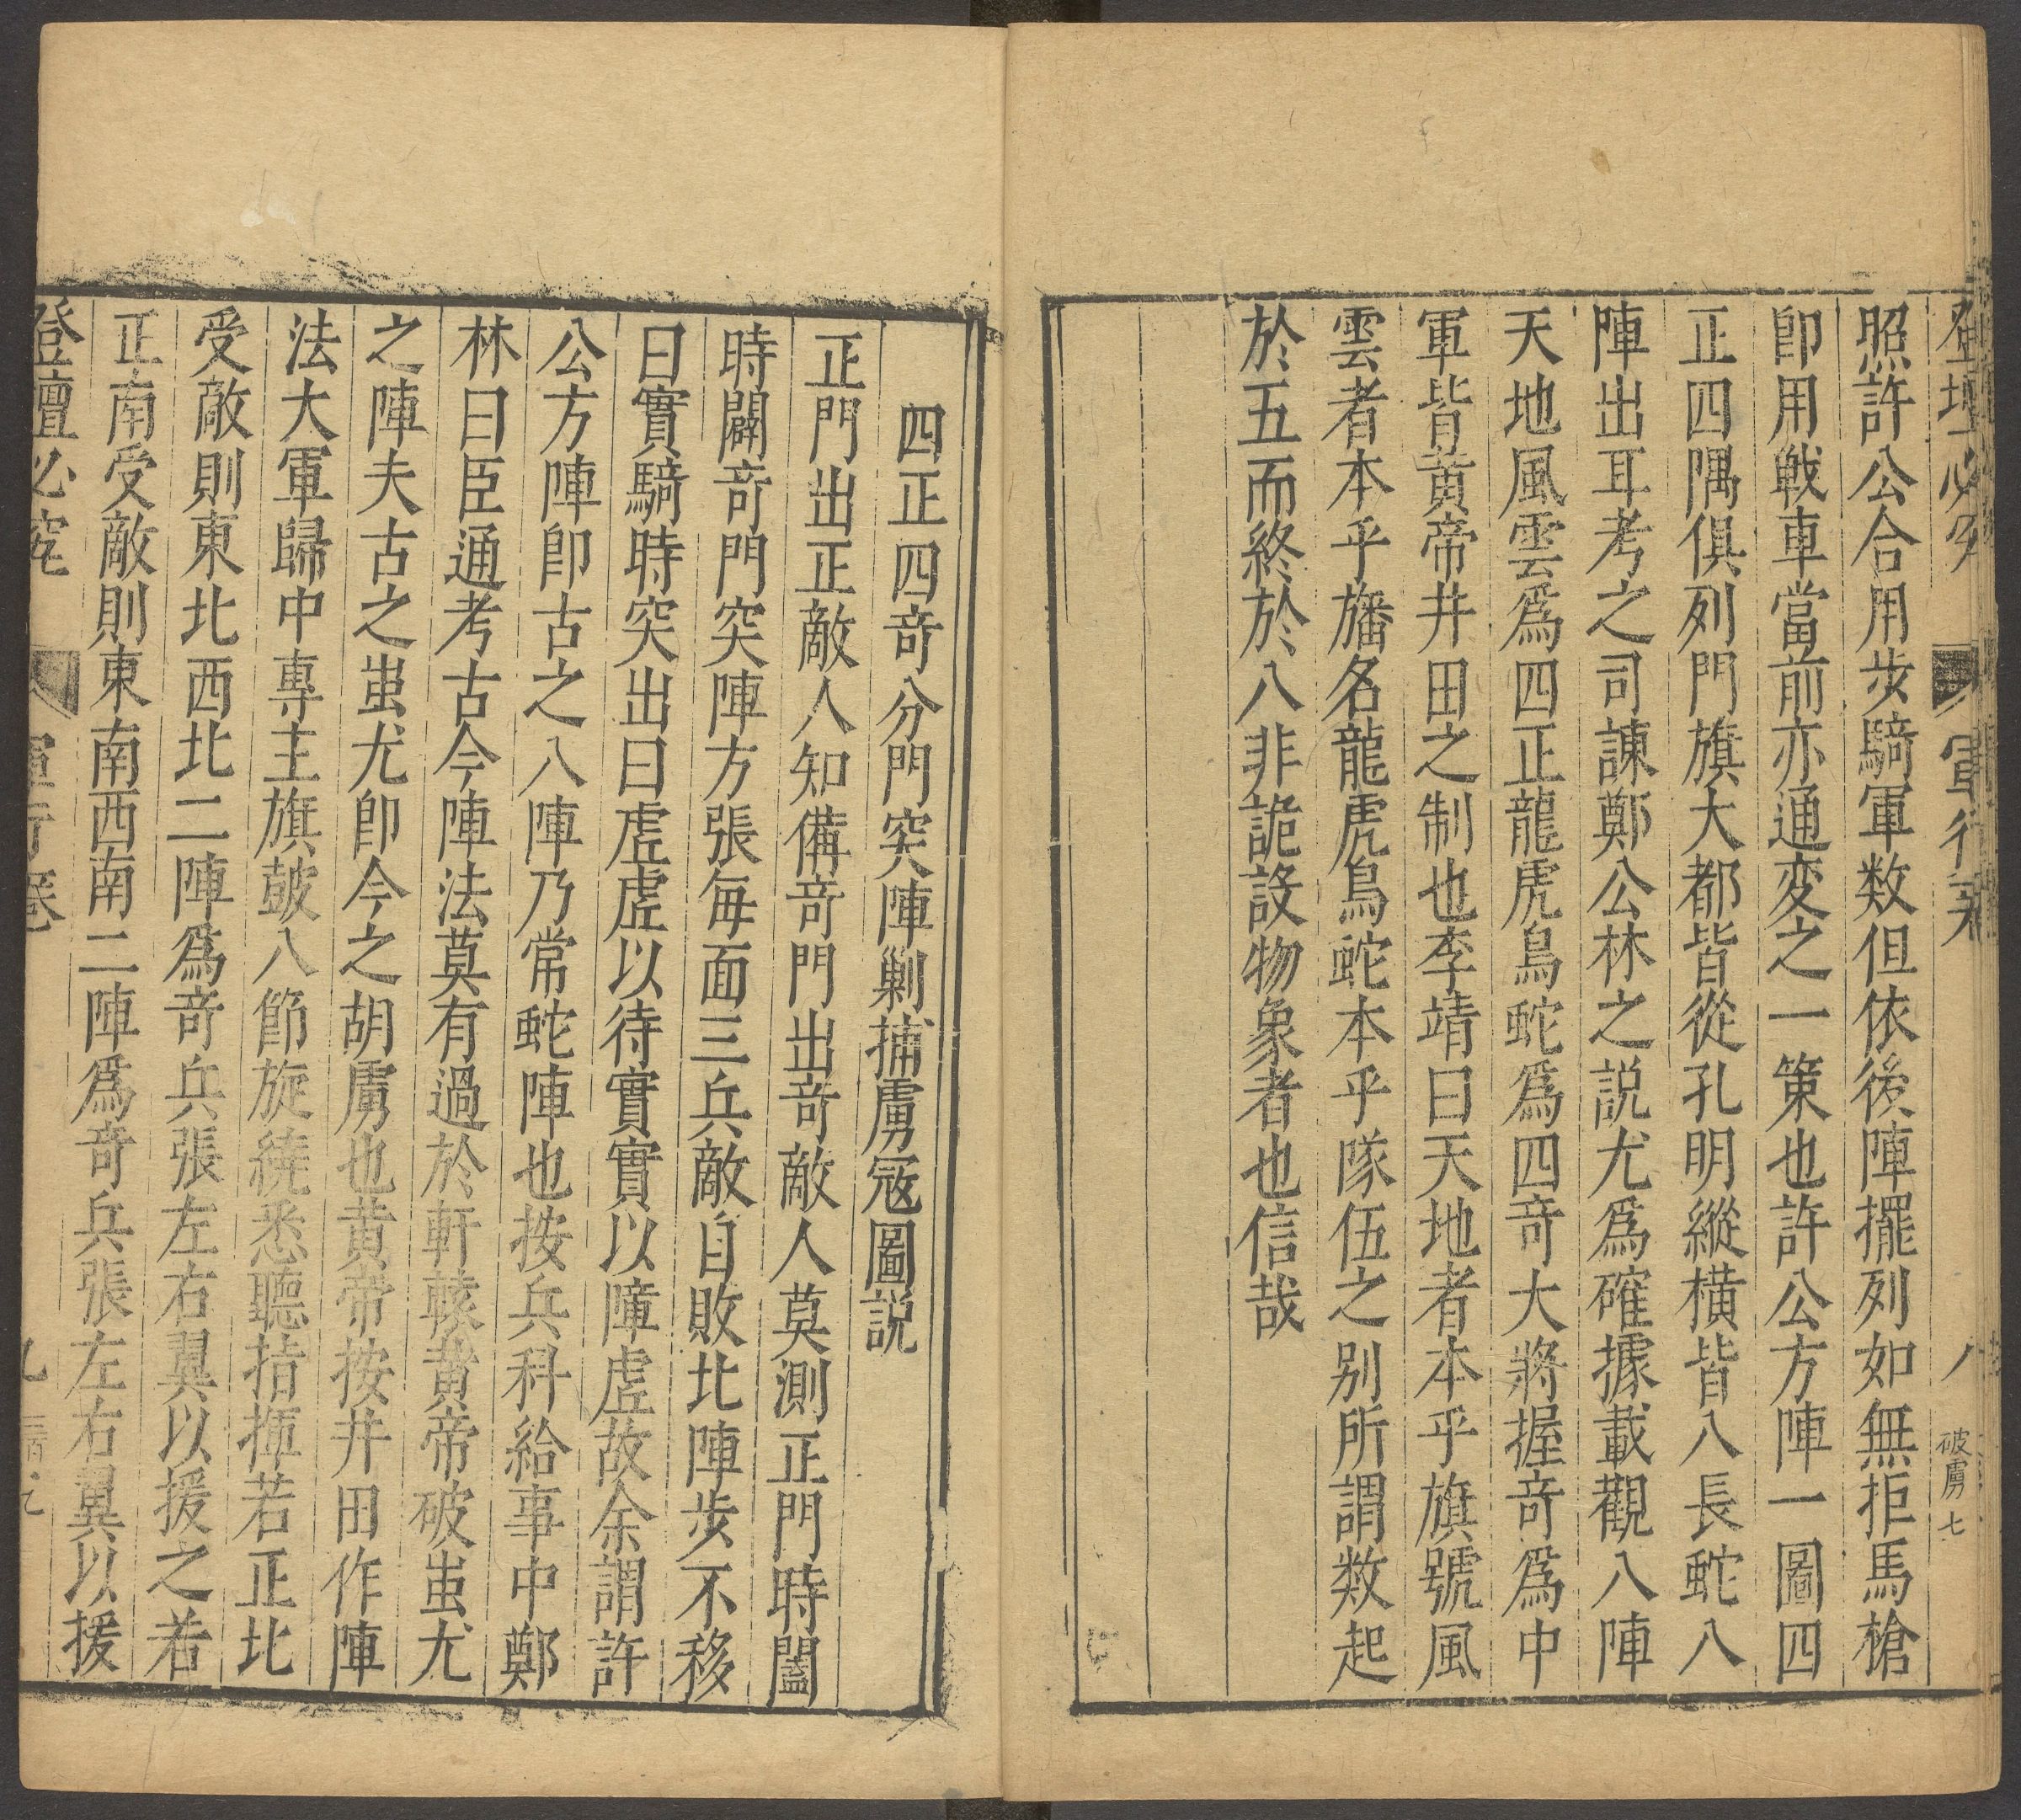 照許公合用步騎軍数但依後陣擺列如無拒馬槍
卽用戰車當前亦通変之一策也許公方陣一圖四
正四隅俱列門旗大都皆從孔明縱橫皆八長蛇八
陣出耳考之司諫鄭公林之説尤爲確據載觀八陣
天地風雲爲四正龍虎鳥蛇爲四竒大將握竒爲中
軍皆黃帝井田之制也李靖曰天地者本乎旗號風
雲者本乎旛名龍虎鳥蛇本乎隊伍之别所謂数起
於五而終於八非詭設物象者也信哉
四正四竒分門突陣剿捕虜冦圖説
正門出正敵人知備竒門出竒敵人莫測正門時闔
時闢竒門突陣方張毎面三兵敵自敗北陣步不移
曰實騎時突出曰虛虛以待實實以障虛故余謂許
公方陣卽古之八陣乃常蛇陣也按兵科給事中鄭
林曰臣通考古今陣法莫有過於軒轅黃帝破蚩尤
之陣夫古之蚩尤卽今之胡虜也黃帝按井田作陣
法大軍歸中專主旗皷八節旋繞悉聽指揮若正北
受敵則東北西北二陣爲竒兵張左右翼以援之若
正南受敵則東南西南二陣爲竒兵張左右翼以援
登壇必究
軍行卷
破虜七